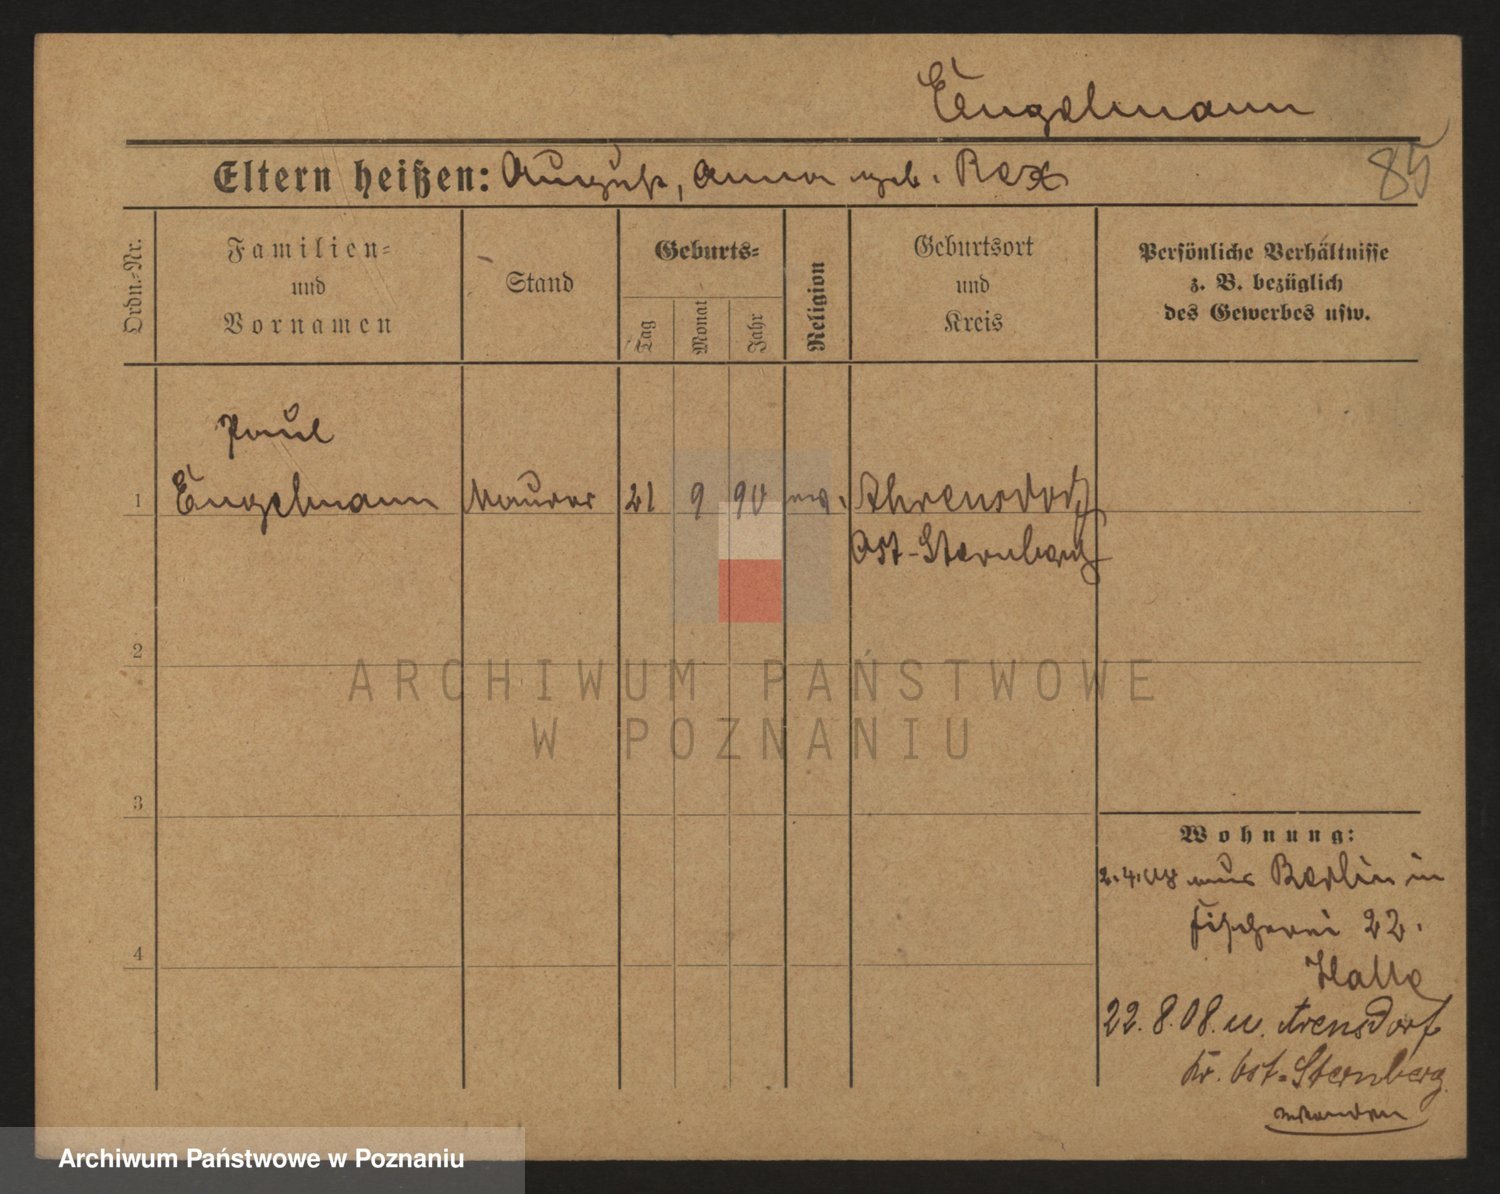 Engelmann
Eltern heißen: August, Anna geb. Rex
85
Ordn.-Nr.
Familien-
und
Vornamen
Stand
Geburts-
Tag
Monat
Jahr
Religion
Geburtsort
und
Kreis
Persönliche Verhältnisse
z. B. bezüglich
des Gewerbes usw.
Paul
1 Engelmann Maurer 21 9 90 ev. Ahrensdorf
Ost-Sternberg
2
3
4
Wohnung:
2.4.08 aus Berlin in
Fischerei 22.
Halle
22.8.08. n. Arensdorf
Kr. Ost-Sternberg
ARCHIWUM PAŃSTWOWE
W POZNANIU
Archiwum Państwowe w Poznaniu